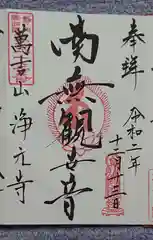 奉拝
令和二年
十二月十三日
南無観世音
萬吉山
浄元寺